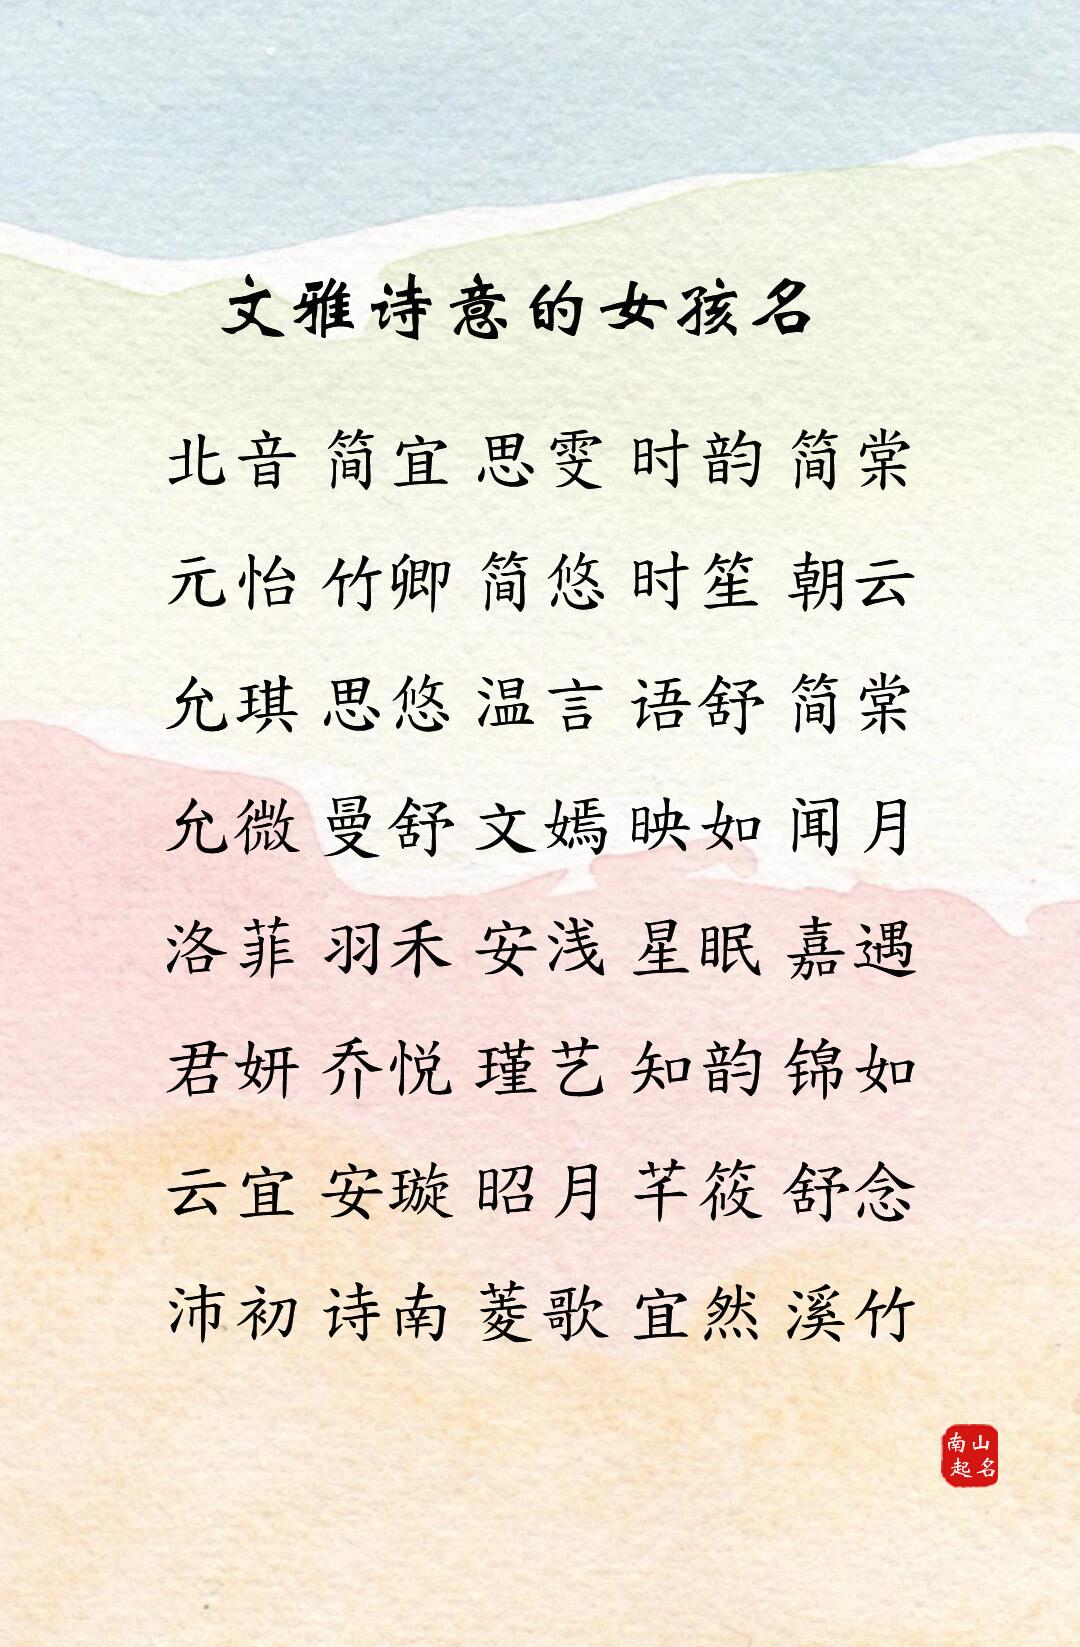 文雅诗意的女孩名
北音 简宜 思雯 时韵 简棠
元怡 竹卿 简悠 时笙 朝云
允琪 思悠 温言 语舒 简棠
允微 曼舒 文嫣 映如 闻月
洛菲 羽禾 安浅 星眠 嘉遇
君妍 乔悦 瑾艺 知韵 锦如
云宜 安璇 昭月 芊筱 舒念
沛初 诗南 菱歌 宜然 溪竹
南山
起名